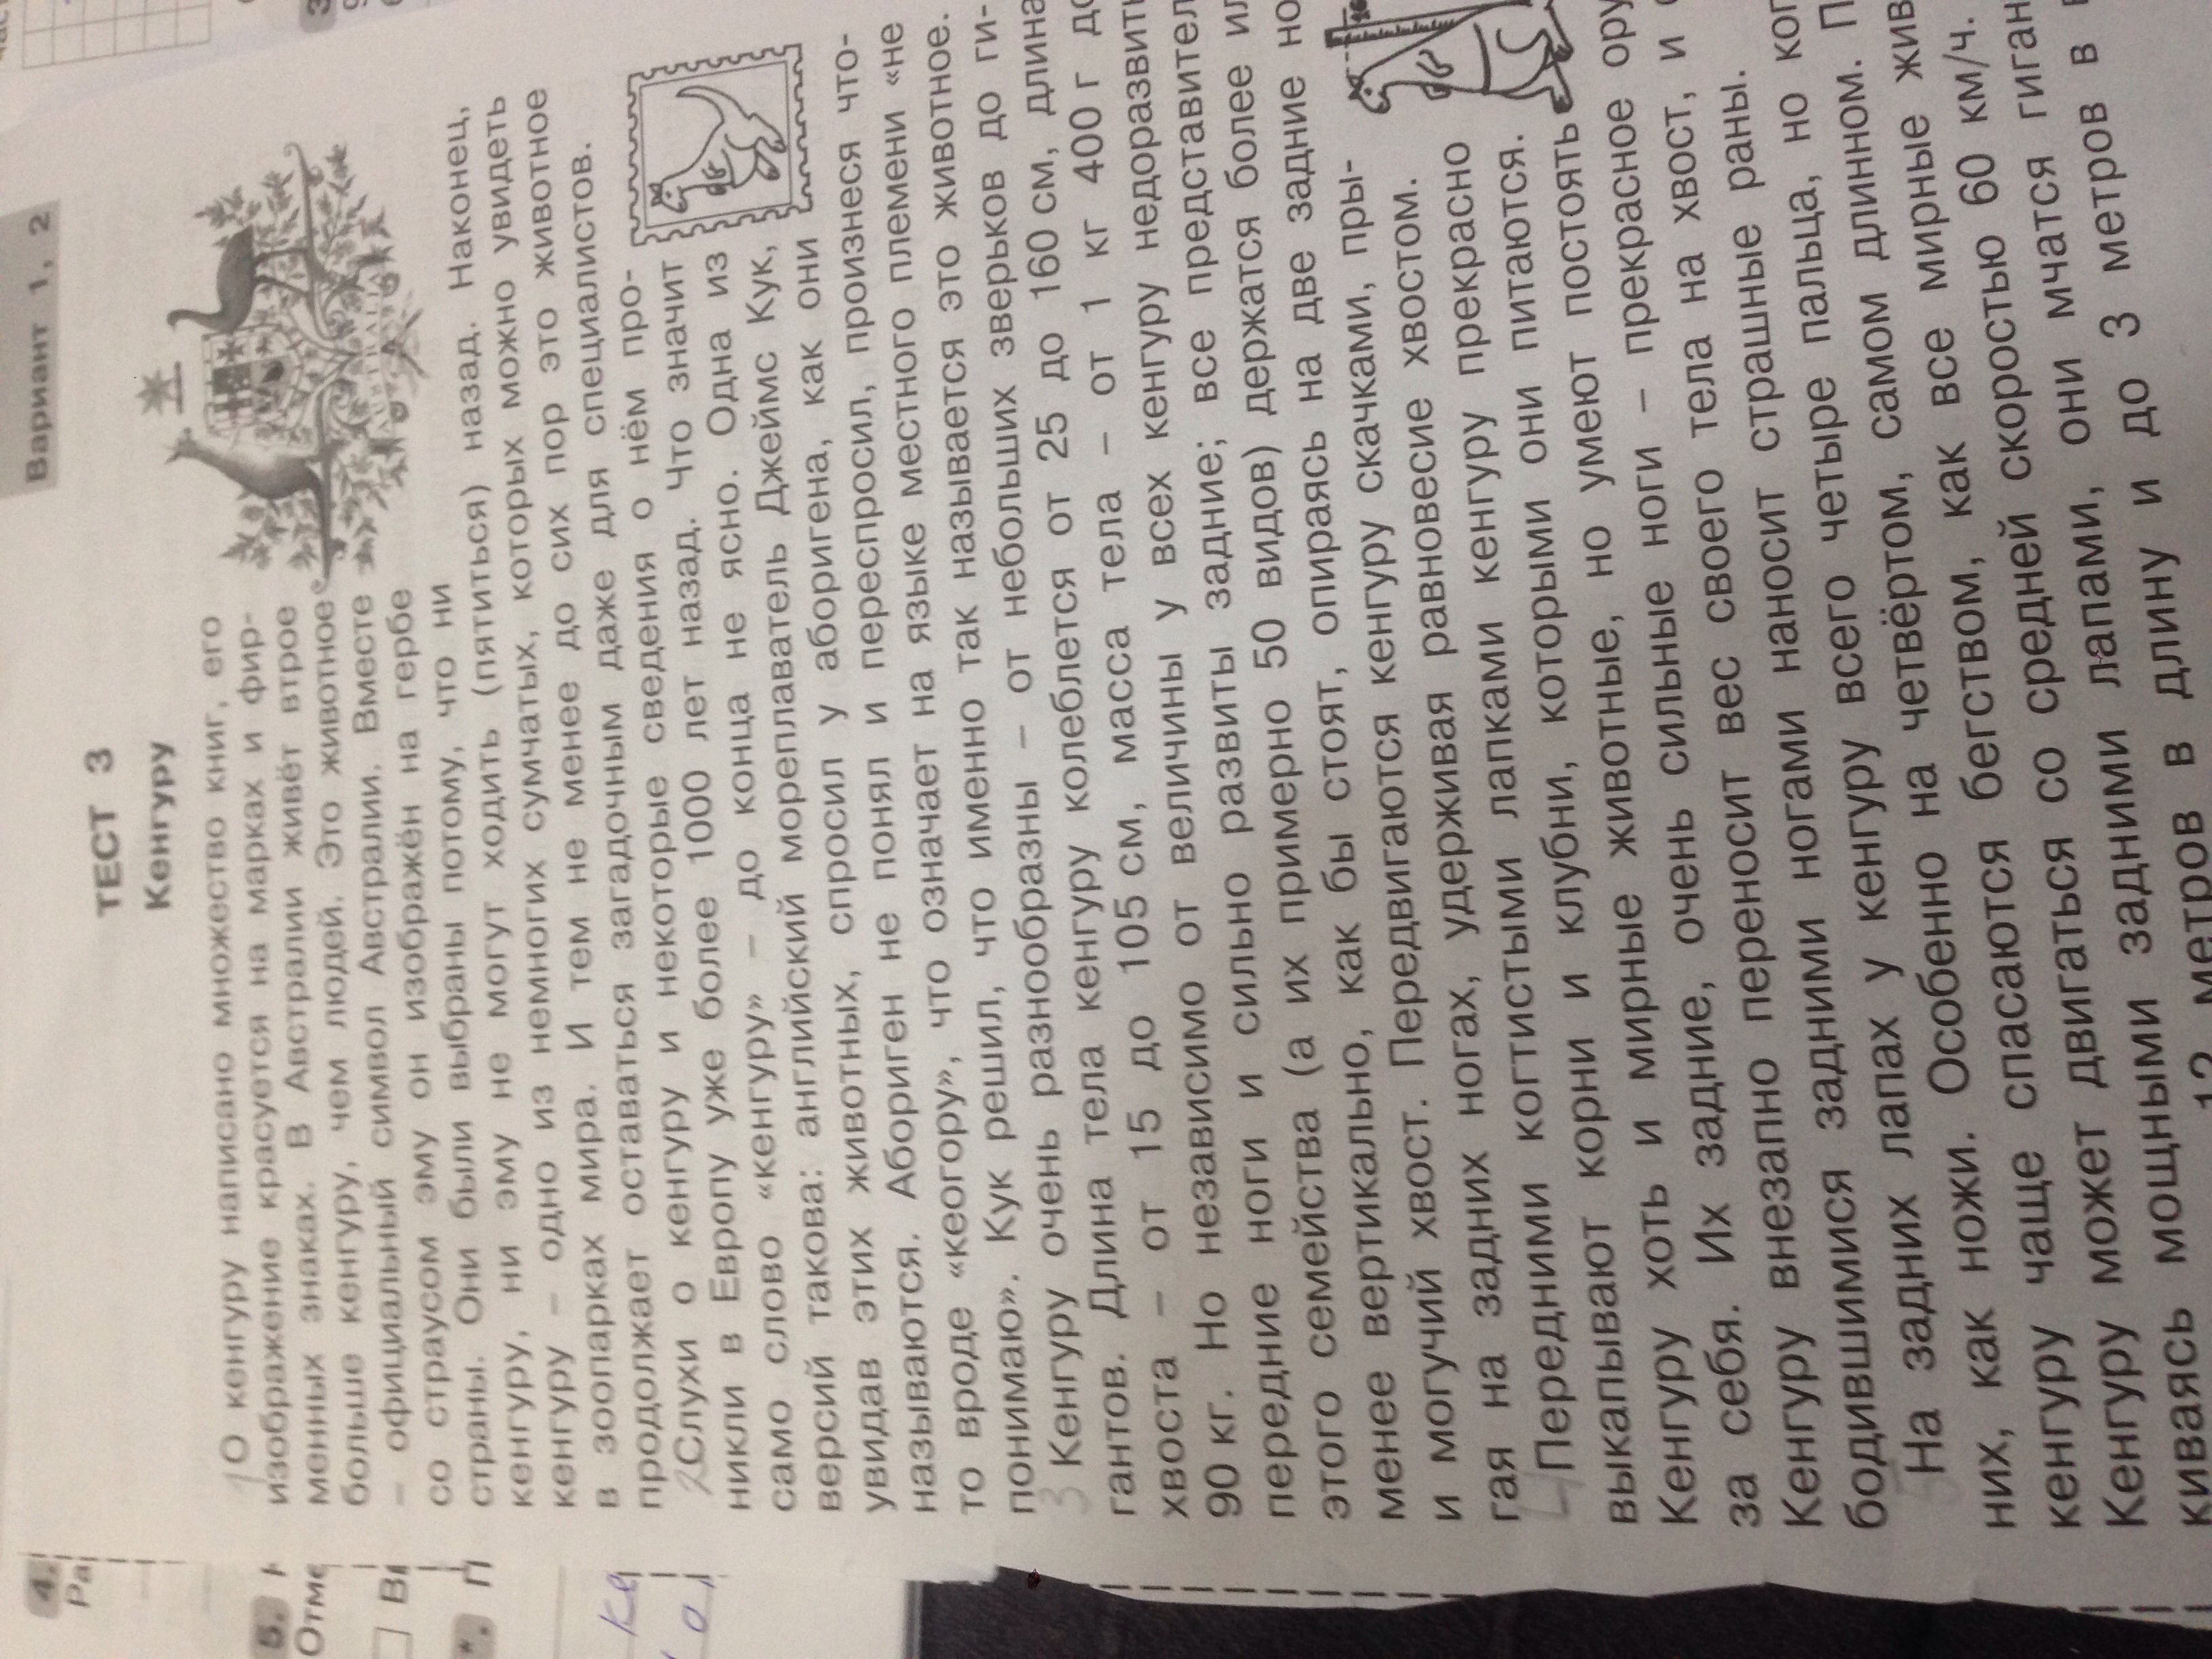 Вариант 1, 2
ТЕСТ 3
Кенгуру
О кенгуру написано множество книг, его
изображение красуется на марках и фир-
менных знаках. В Австралии живёт втрое
больше кенгуру, чем людей. Это животное
– официальный символ Австралии. Вместе
со страусом эму он изображён на гербе
страны. Они были выбраны потому, что ни
кенгуру, ни эму не могут ходить (пятиться) назад. Наконец,
кенгуру – одно из немногих сумчатых, которых можно увидеть
в зоопарках мира. И тем не менее до сих пор это животное
продолжает оставаться загадочным даже для специалистов.
Слухи о кенгуру и некоторые сведения о нём про-
никли в Европу уже более 1000 лет назад. Что значит
само слово «кенгуру» – до конца не ясно. Одна из
версий такова: английский мореплаватель Джеймс Кук,
увидав этих животных, спросил у аборигена, как они
называются. Абориген не понял и переспросил, произнеся что-
то вроде «кеогору», что означает на языке местного племени «не
понимаю». Кук решил, что именно так называется это животное.
Кенгуру очень разнообразны – от небольших зверьков до ги-
гантов. Длина тела кенгуру колеблется от 25 до 160 см, длина
хвоста – от 15 до 105 см, масса тела – от 1 кг 400 г до
90 кг. Но независимо от величины у всех кенгуру недоразвиты
передние ноги и сильно развиты задние; все представител
этого семейства (а их примерно 50 видов) держатся более ил
менее вертикально, как бы стоят, опираясь на две задние но
и могучий хвост. Передвигаются кенгуру скачками, пры-
гая на задних ногах, удерживая равновесие хвостом.
Передними когтистыми лапками кенгуру прекрасно
выкапывают корни и клубни, которыми они питаются.
Кенгуру хоть и мирные животные, но умеют постоять
за себя. Их задние, очень сильные ноги – прекрасное ору
Кенгуру внезапно переносит вес своего тела на хвост, и
бодившимися задними ногами наносит страшные раны.
На задних лапах у кенгуру всего четыре пальца, но ког
них, как ножи. Особенно на четвёртом, самом длинном. П
кенгуру чаще спасаются бегством, как все мирные жив
Кенгуру может двигаться со средней скоростью 60 км/ч.
киваясь мощными задними лапами, они мчатся гиган
12 метров в длину и до 3 метров в в
4.
Ра
5.
Отме
*. П